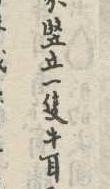 豎立一隻牛耳